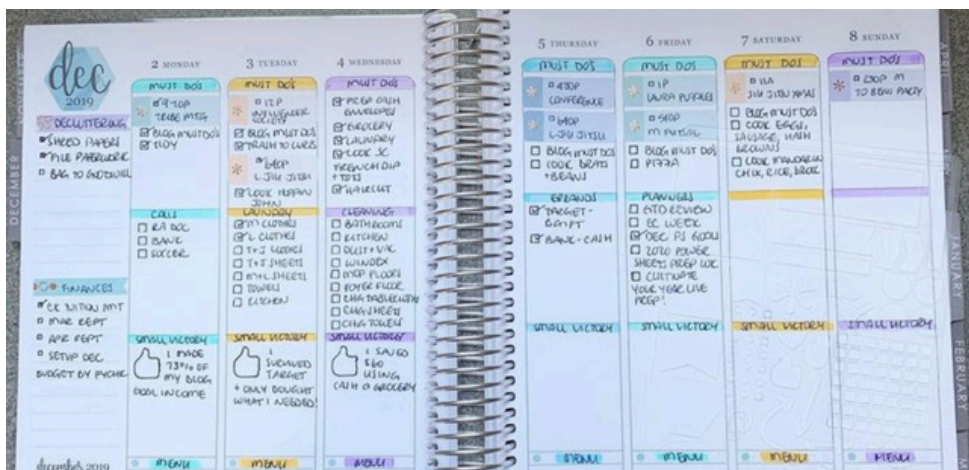 dec
2019
DECLUTTERING
SHRED PAPERS
FILE PAPERWORK
BAG TO GOODWILL
FINANCES
MAR REPT
APR REPT
SETUP DEC
BUDGET BY PYCHK
december 2019
2 MONDAY
MUST DO'S
9-10P
TRIBE MTG
BLOG MUST DO'S
TIDY
CALLS
RA DOC
BANK
SOCCER
SMALL VICTORY
I MADE
73% OF
MY BLOG
GOAL INCOME
MENU
3 TUESDAY
MUST DO'S
12P
INFLUENCER
SOCIETY
BLOG MUST DO'S
TRASH TO CURB
640P
L JIU JITSU
COOK
JOHN
LAUNDRY
M CLOTHES
L CLOTHES
T+J CLOTHES
T+J SHEETS
M+L SHEETS
TOWELS
KITCHEN
SMALL VICTORY
I
SURVIVED
TARGET
+ ONLY BOUGHT
WHAT I NEEDED!
MENU
4 WEDNESDAY
MUST DO'S
PREP CASH
ENVELOPES
GROCERY
LAUNDRY
COOK SC
FRENCH DIP
+ TOTS
HAIRCUT
CLEANING
BATHROOMS
KITCHEN
DUST + VAC
WINDEX
MOP FLOORS
FOYER FLOOR
CHG TABLECLOTH
CHG SHEETS
CHG TOWELS
SMALL VICTORY
I SAVED
$60
USING
CASH @ GROCERY
MENU
5 THURSDAY
MUST DO'S
430P
CONFERENCE
640P
L JIU JITSU
BLOG MUST DO'S
COOK BRATS
+ BEANS
ERRANDS
TARGET -
BANK - CASH
SMALL VICTORY
MENU
6 FRIDAY
MUST DO'S
1P
LAURA PUZZLES
540P
M FUTSAL
BLOG MUST DO'S
PIZZA
PLANNERS
GTD REVIEW
EC WEEK
DEC PS GOALS
2020 POWER
SHEETS PREP WK
CULTIVATE
YOUR YEAR LIVE
PREP!
SMALL VICTORY
MENU
7 SATURDAY
MUST DO'S
11A
JIU JITSU XMAS
BLOG MUST DO'S
COOK EGGS,
SAUSAGE, HASH
BROWNS
COOK MANDARIN
CHIK, RICE, BROC
SMALL VICTORY
MENU
8 SUNDAY
MUST DO'S
230P M
TO BEAU PARTY
SMALL VICTORY
MENU
DECEMBER
JANUARY
FEBRUARY